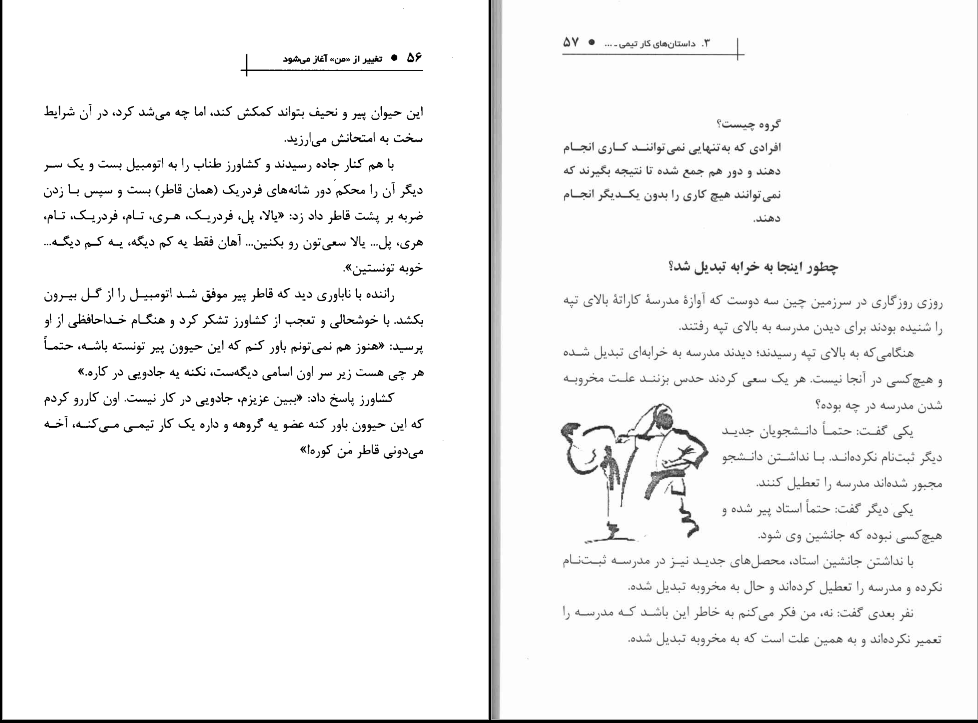 ۵۶ ● تغییر از «من» آغاز می‌شود
این حیوان پیر و نحیف بتواند کمکش کند، اما چه می‌شد کرد، در آن شرایط
سخت به امتحانش می‌ارزید.
با هم کنار جاده رسیدند و کشاورز طناب را به اتومبیل بست و یک سر
دیگر آن را محکم دور شانه‌های فردریک (همان قاطر) بست و سپس با زدن
ضربه بر پشت قاطر داد زد: «یالا، پل، فردریک، هری، تام، فردریک، تام،
هری، پل... یالا سعی‌تون رو بکنین... آهان فقط یه کم دیگه، یه کم دیگه...
خوبه تونستین».
راننده با ناباوری دید که قاطر پیر موفق شد اتومبیل را از گل بیرون
بکشد. با خوشحالی و تعجب از کشاورز تشکر کرد و هنگام خداحافظی از او
پرسید: «هنوز هم نمی‌تونم باور کنم که این حیوون پیر تونسته باشه، حتماً
هر چی هست زیر سر اون اسامی دیگه‌ست، نکنه یه جادویی در کاره.»
کشاورز پاسخ داد: «ببین عزیزم، جادویی در کار نیست. اون کاررو کردم
که این حیوون باور کنه عضو یه گروهه و داره یک کار تیمی می‌کنه، آخه
می‌دونی قاطر مَن کوره!»
۳. داستان‌های کار تیمی ـ ... ● ۵۷
گروه چیست؟
افرادی که به‌تنهایی نمی‌توانند کاری انجام
دهند و دور هم جمع شده تا نتیجه بگیرند که
نمی‌توانند هیچ کاری را بدون یکدیگر انجام
دهند.
چطور اینجا به خرابه تبدیل شد؟
روزی روزگاری در سرزمین چین سه دوست که آوازهٔ مدرسهٔ کاراتهٔ بالای تپه
را شنیده بودند برای دیدن مدرسه به بالای تپه رفتند.
هنگامی‌که به بالای تپه رسیدند؛ دیدند مدرسه به خرابه‌ای تبدیل شده
و هیچ‌کسی در آنجا نیست. هر یک سعی کردند حدس بزنند علت مخروبه
شدن مدرسه در چه بوده؟
یکی گفت: حتماً دانشجویان جدید
دیگر ثبت‌نام نکرده‌اند. با نداشتن دانشجو
مجبور شده‌اند مدرسه را تعطیل کنند.
یکی دیگر گفت: حتماً استاد پیر شده و
هیچ‌کسی نبوده که جانشین وی شود.
با نداشتن جانشین استاد، محصل‌های جدید نیز در مدرسه ثبت‌نام
نکرده و مدرسه را تعطیل کرده‌اند و حال به مخروبه تبدیل شده.
نفر بعدی گفت: نه، من فکر می‌کنم به خاطر این باشد که مدرسه را
تعمیر نکرده‌اند و به همین علت است که به مخروبه تبدیل شده.